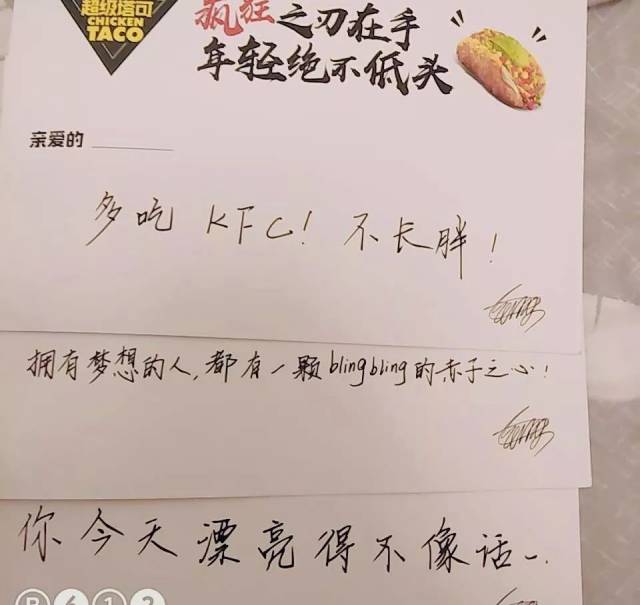 超级塔可
CHICKEN
TACO
疯狂之刃在手
年轻绝不低头
亲爱的
多吃 KFC! 不长胖!
拥有梦想的人,都有一颗blingbling的赤子之心!
你今天漂亮得不像话..
B612